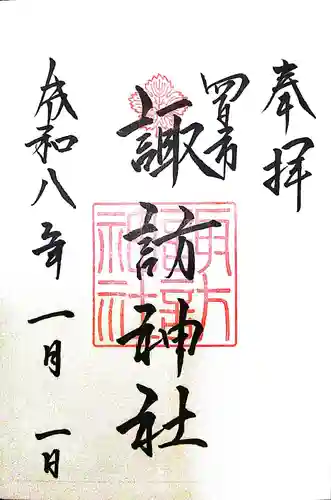 奉拝
四日市
諏訪神社
令和八年一月一日
諏訪神社